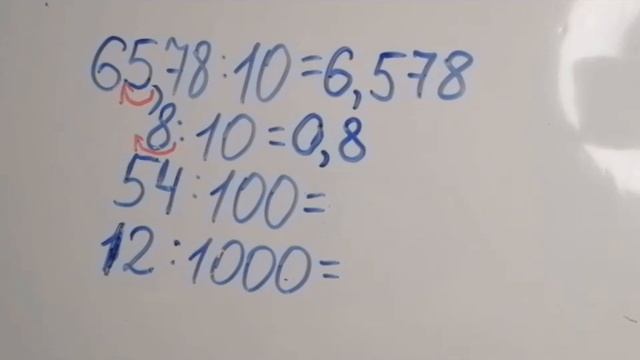 65,78:10=6,578
8:10=0,8
54:100=
12:1000=